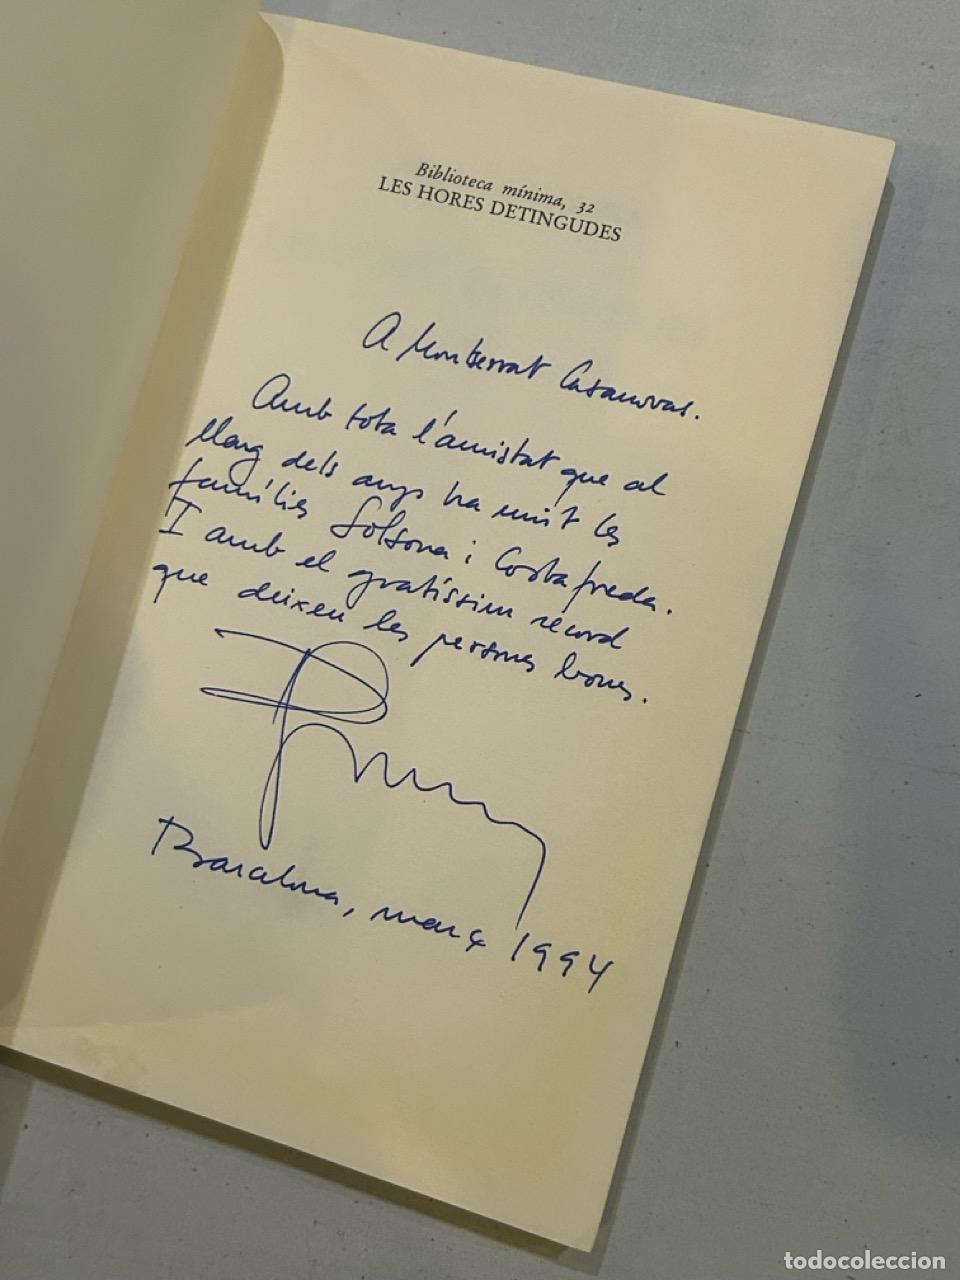 Biblioteca mínima, 32
LES HORES DETINGUDES
A Montserrat Casanovas.
Amb tota l'amistat que al
llarg dels anys ha unit les
famílies Solsona i Costafreda.
I amb el gratíssim record
que deixen les persones bones.
Barcelona, març 1994
todocoleccion